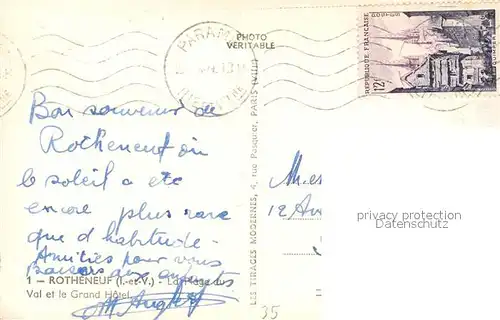 PHOTO
VERITABLE
PARAMÉ
REPUBLIQUE FRANÇAISE
POSTES
12F
Bon souvenir de
Rotheneuf où
le soleil a été
encore plus rare
que d'habitude.
Amitiés pour vous
Baisers aux enfants
1 - ROTHÉNEUF (I.-et-V.) - La Plage du
Val et le Grand Hôtel
LES TIRAGES MODERNES, 4, rue Pasquier, PARIS (VIIIe)
12 Av
privacy protection
Datenschutz
35